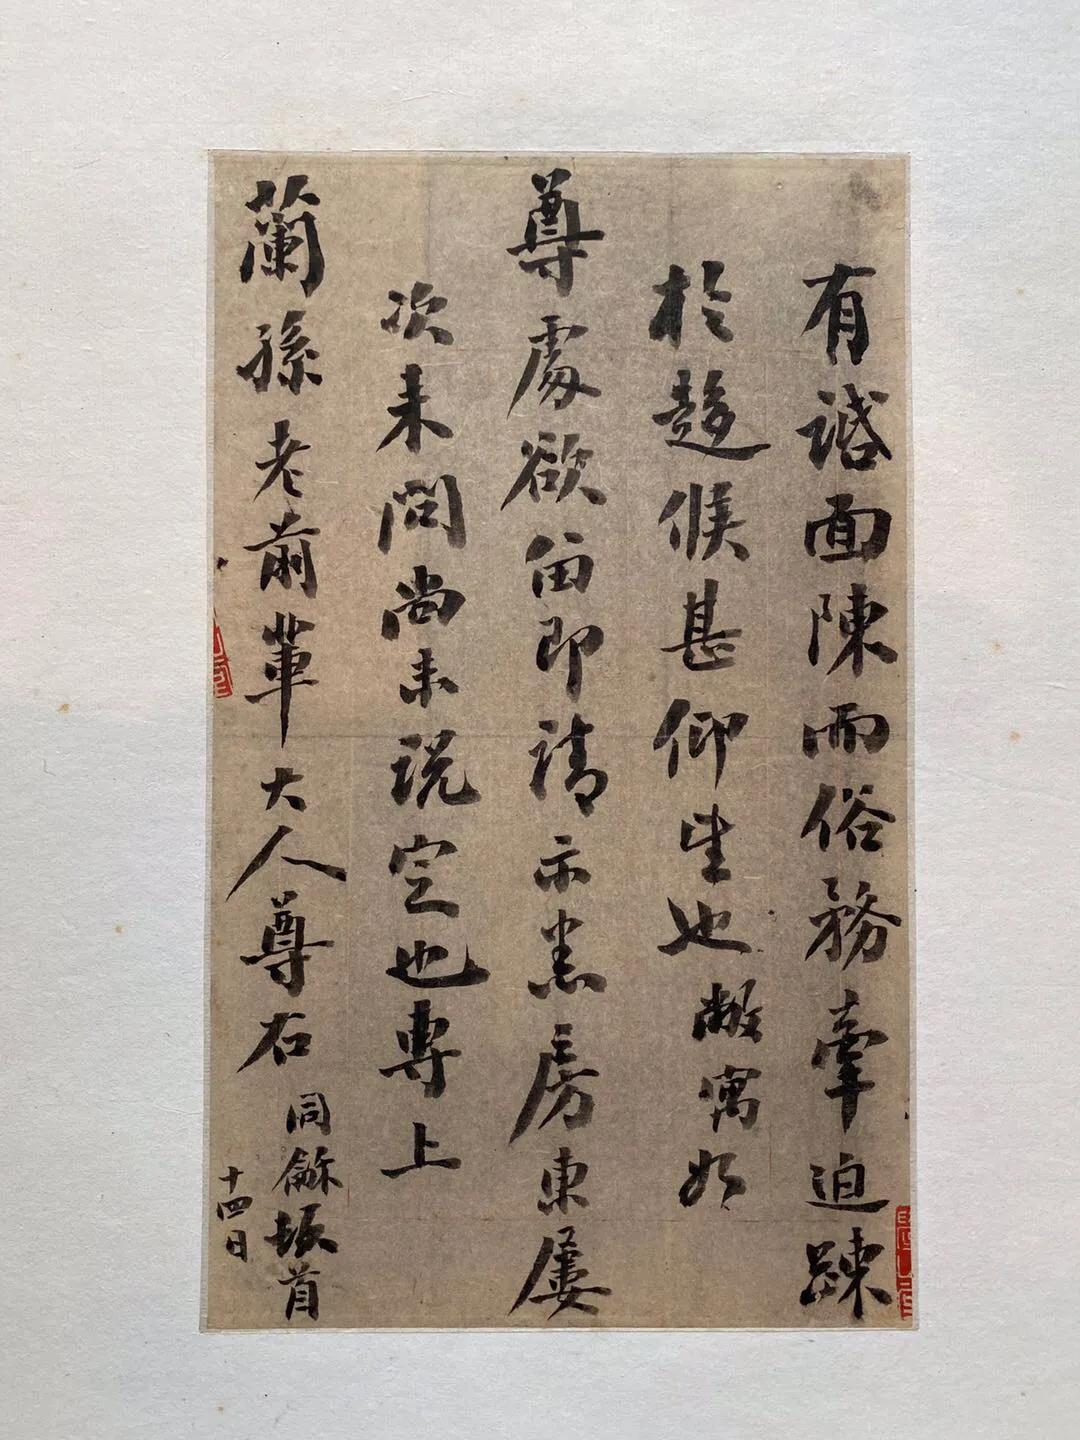 有話面陳而俗務牽迫踈
於趨候甚仰望也敝寓如
尊處欲留即請示悉房東屢
次来問尚未説定也專上
蘭孫老前輩大人尊右
同龢頓首
十四日